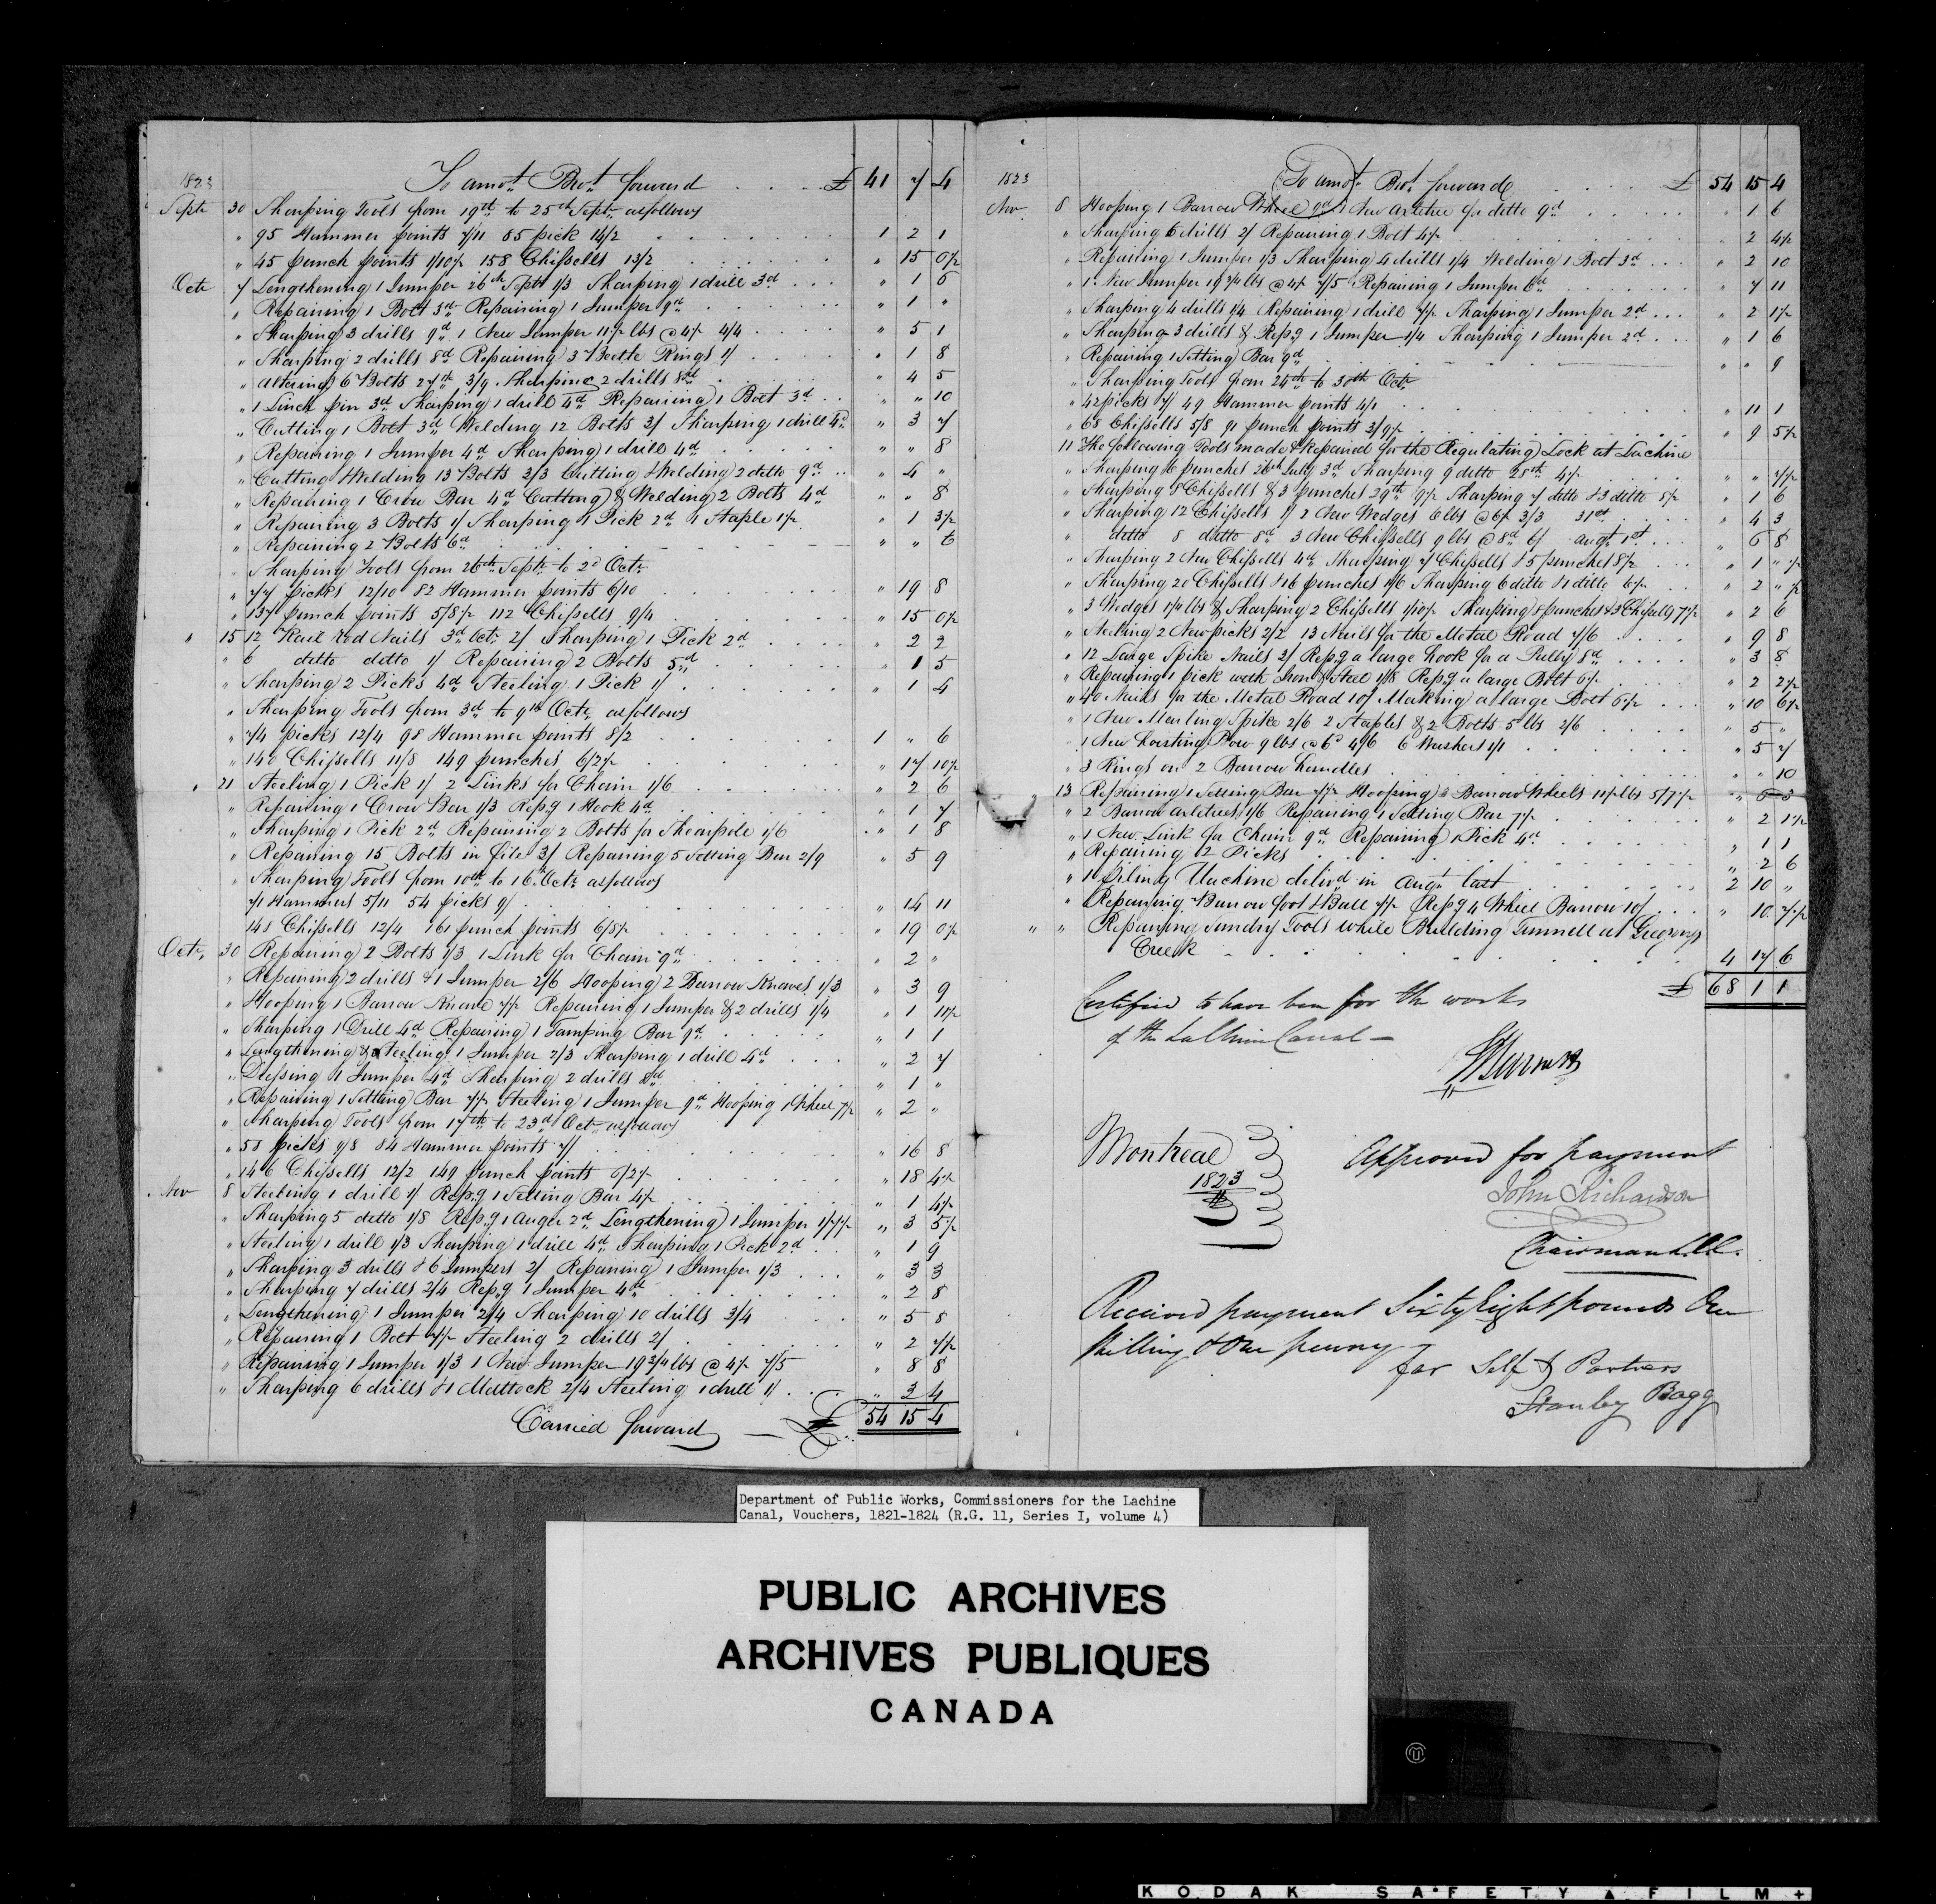 1823 To amot. Brot. forward £ 41 7 4
Septr 30 Sharping Tools from 19th to 25th Septr. as follows
" 95 Hammer points 7/11 85 pick 14/2 1 2 1
" 45 punch points 1/10½ 158 Chissells 13/2 " 15 0½
Octr 7 Lengthening 1 Jumper 26th Septr 1/3 Sharping 1 drill 3d " 1 6
" Repairing 1 Bolt 3d Repairing 1 Jumper 9d " 1 "
" Sharping 3 drills 9d 1 New Jumper 11½ lbs @ 4½ 4/4 " 5 1
" Sharping 2 drills 8d Repairing 3 Beetle Rings 1/ " 1 8
" Altering 6 Bolts 27th 3/9 Sharping 2 drills 8d " 4 5
" 1 Linch pin 3d Sharping 1 drill 4d Repairing 1 Bolt 3d " " 10
" Cutting 1 Bolt 3d Welding 12 Bolts 3/ Sharping 1 drill 4d " 3 7
" Repairing 1 Jumper 4d Sharping 1 drill 4d " " 8
" Cutting & Welding 13 Bolts 3/3 Cutting & Welding 2 ditto 9d " 4 "
" Repairing 1 Crow Bar 4d Cutting & Welding 2 Bolts 4d " " 8
" Repairing 3 Bolts 1/ Sharping 1 Pick 2d 1 Staple 1½ " 1 3½
" Repairing 2 Bolts 6d " " 6
" Sharping Tools from 26th Septr. to 2d Octr
" 77 picks 12/10 82 Hammer points 6/10 " 19 8
" 137 punch points 5/8½ 112 Chissells 9/4 " 15 0½
" 15 12 Rail rod Nails 3d Octr. 2/ Sharping 1 Pick 2d " 2 2
" 6 ditto ditto 1/ Repairing 2 Bolts 5d " 1 5
" Sharping 2 Picks 4d Steeling 1 Pick 1/ " 1 4
" Sharping Tools from 3d to 9th Octr. as follows
" 74 picks 12/4 98 Hammer points 8/2 1 " 6
" 140 Chissells 11/8 149 punches 6/2½ " 17 10½
" 21 Steeling 1 Pick 1/ 2 Links for Chain 1/6 " 2 6
" Repairing 1 Crow Bar 1/3 Repg 1 Hook 4d " 1 7
" Sharping 1 Pick 2d Repairing 2 Bolts for Shearpole 1/6 " 1 8
" Repairing 15 Bolts in file 3/ Repairing 5 Setting Bar 2/9 " 5 9
" Sharping Tools from 10th to 16th Octr as follows
71 Hammers 5/11 54 picks 9/ " 14 11
148 Chissells 12/4 161 punch points 6/8½ " 19 0½
Octr. 30 Repairing 2 Bolts 1/3 1 Link for Chain 9d " 2 "
" Repairing 2 drills & 1 Jumper 2/6 Hooping 2 Barrow Knaves 1/3 " 3 9
" Hooping 1 Barrow Knave 7½ Repairing 1 Jumper & 2 drills 1/4 " 1 11½
" Sharping 1 Drill 4d Repairing 1 Tamping Bar 9d " 1 1
" Lengthening & Steeling 1 Jumper 2/3 Sharping 1 drill 4d " 2 7
" Dressing 1 Jumper 4d Sharping 2 drills 8d " 1 "
" Repairing 1 Setting Bar 7½ Steeling 1 Jumper 9d Hooping 1 Wheel 7½ " 2 "
" Sharping Tools from 17th to 23d Octr as follows
" 58 picks 9/8 84 Hammer points 7/ " 16 8
" 146 Chissells 12/2 149 punch points 6/2½ " 18 4½
Nov 8 Steeling 1 drill 1/ Repg 1 Setting Bar 4½ " 1 4½
" Sharping 5 ditto 1/8 Repg 1 Auger 2d Lengthening 1 Jumper 1/7½ " 3 5½
" Steeling 1 drill 1/3 Sharping 1 drill 4d Sharping 1 Pick 2d " 1 9
" Sharping 3 drills & 6 Jumpers 2/ Repairing 1 Jumper 1/3 " 3 3
" Sharping 7 drills 2/4 Repg 1 Jumper 4d " 2 8
" Lengthening 1 Jumper 2/4 Sharping 10 drills 3/4 " 5 8
" Repairing 1 Bolt 7½ Steeling 2 drills 2/ " 2 7½
" Repairing 1 Jumper 1/3 1 New Jumper 19 3/4 lbs @ 4½ 7/5 " 8 8
" Sharping 6 drills & 1 Mattock 2/4 Steeling 1 drill 1/ " 3 4
Carried forward £ 54 15 4
1823 To amot. Brot. forward £ 54 15 4
Nov. 8 Hooping 1 Barrow Wheel 9d 1 New Axletree for ditto 9d " 1 6
" Sharping 6 drills 2/ Repairing 1 Bolt 4½ " 2 4½
" Repairing 1 Jumper 1/3 Sharping 4 drills 1/4 Welding 1 Bolt 3d " 2 10
" 1 New Jumper 19 3/4 lbs @ 4½ 7/5 Repairing 1 Jumper 6d " 7 11
" Sharping 4 drills 1/4 Repairing 1 drill 7½ Sharping 1 Jumper 2d " 2 1½
" Sharping 3 drills & Repg 1 Jumper 1/4 Sharping 1 Jumper 2d " 1 6
" Repairing 1 Setting Bar 9d " " 9
" Sharping Tools from 24th to 30th Octr
" 42 picks 7/ 49 Hammer points 4/1 " 11 1
" 68 Chissells 5/8 91 punch points 3/9½ " 9 5½
11 The following Tools made & Repaired for the Regulating Lock at Lachine
" Sharping 6 punches 26th July 3d Sharping 9 ditto 28th 4½ " " 7½
" Sharping 8 Chissells & 3 punches 29th 9½ Sharping 7 ditto & 3 ditto 8½ " 1 6
" Sharping 12 Chissells 1/ 2 New Wedges 6 lbs @ 6½ 3/3 31st " 4 3
" ditto 8 ditto 8d 3 New Chissells 9 lbs @ 8d 6/ Augt. 1st " 6 8
" Sharping 2 New Chissells 4d Sharping 7 Chissells & 5 punches 8½ " 1 " ½
" Sharping 20 Chissells & 16 punches 1/6 Sharping 6 ditto & 1 ditto 6½ " 2 " ½
" 3 Wedges 1¼ lbs & Sharping 2 Chissells 1/10½ Sharping 8 punches & 3 Chissells 7½ " 2 6
" Steeling 2 New picks 2/2 13 Nails for the Metal Road 7/6 " 9 8
" 12 Large Spike Nails 3/ Repg a large hook for a Pully 8d " 3 8
" Repairing 1 pick with Iron & Steel 1/8 Repg a large Bolt 6½ " 2 2½
" 40 Nails for the Metal Road 10/ Making a large Bolt 6½ " 10 6½
" 1 New Marling Spike 2/6 2 Staples & 2 Bolts 5 lbs 2/6 " 5 "
" 1 New hoisting Bow 9 lbs @ 6d 4/6 6 Washers 1/1 " 5 7
" 3 Rings on 2 Barrow handles " " 10
" 13 Repairing 1 Setting Bar 7½ Hooping 3 Barrow Wheels 11½ lbs 5/7½ " 6 3
" 2 Barrow axletrees 1/6 Repairing 1 Setting Bar 7½ " 2 1½
" 1 New Link for Chain 9d Repairing 1 Pick 4d " 1 1
" Repairing 12 Picks " 2 6
" 1 Piling Machine delivd in Augt last 2 10 "
" Repairing Barrow foot & Ball 7½ Repg 4 Wheel Barrow 10/ " 10 7½
" " Repairing Sundry Tools while Building Tunnell at Gregorys
Creek 4 17 6
£ 68 1 1
Certified to have been for the works
of the La Chine Canal —
Montreal
1823
Approved for payment
John Richardson
Chairman L.C.
Received payment Sixty Eight pounds One
Shilling & One penny —
for Self & Partners
Stanley Bagg
Department of Public Works, Commissioners for the Lachine
Canal, Vouchers, 1821-1824 (R.G. 11, Series I, volume 4)
PUBLIC ARCHIVES
ARCHIVES PUBLIQUES
CANADA
KODAK SAFETY FILM